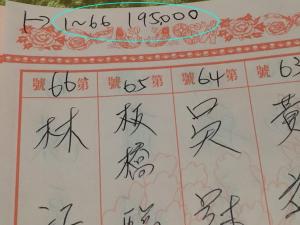 1~66 195,000
第63號
黃
第64號
吳
第65號
板橋
第66號
林